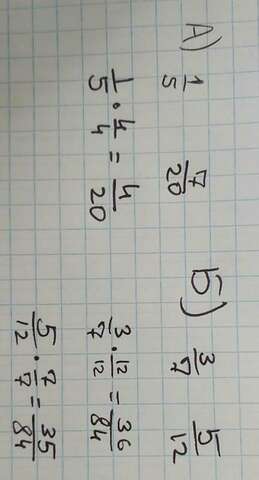 А) 1/5 7/20
1/5 · 4/4 = 4/20
Б) 3/7 5/12
3/7 · 12/12 = 36/84
5/12 · 7/7 = 35/84